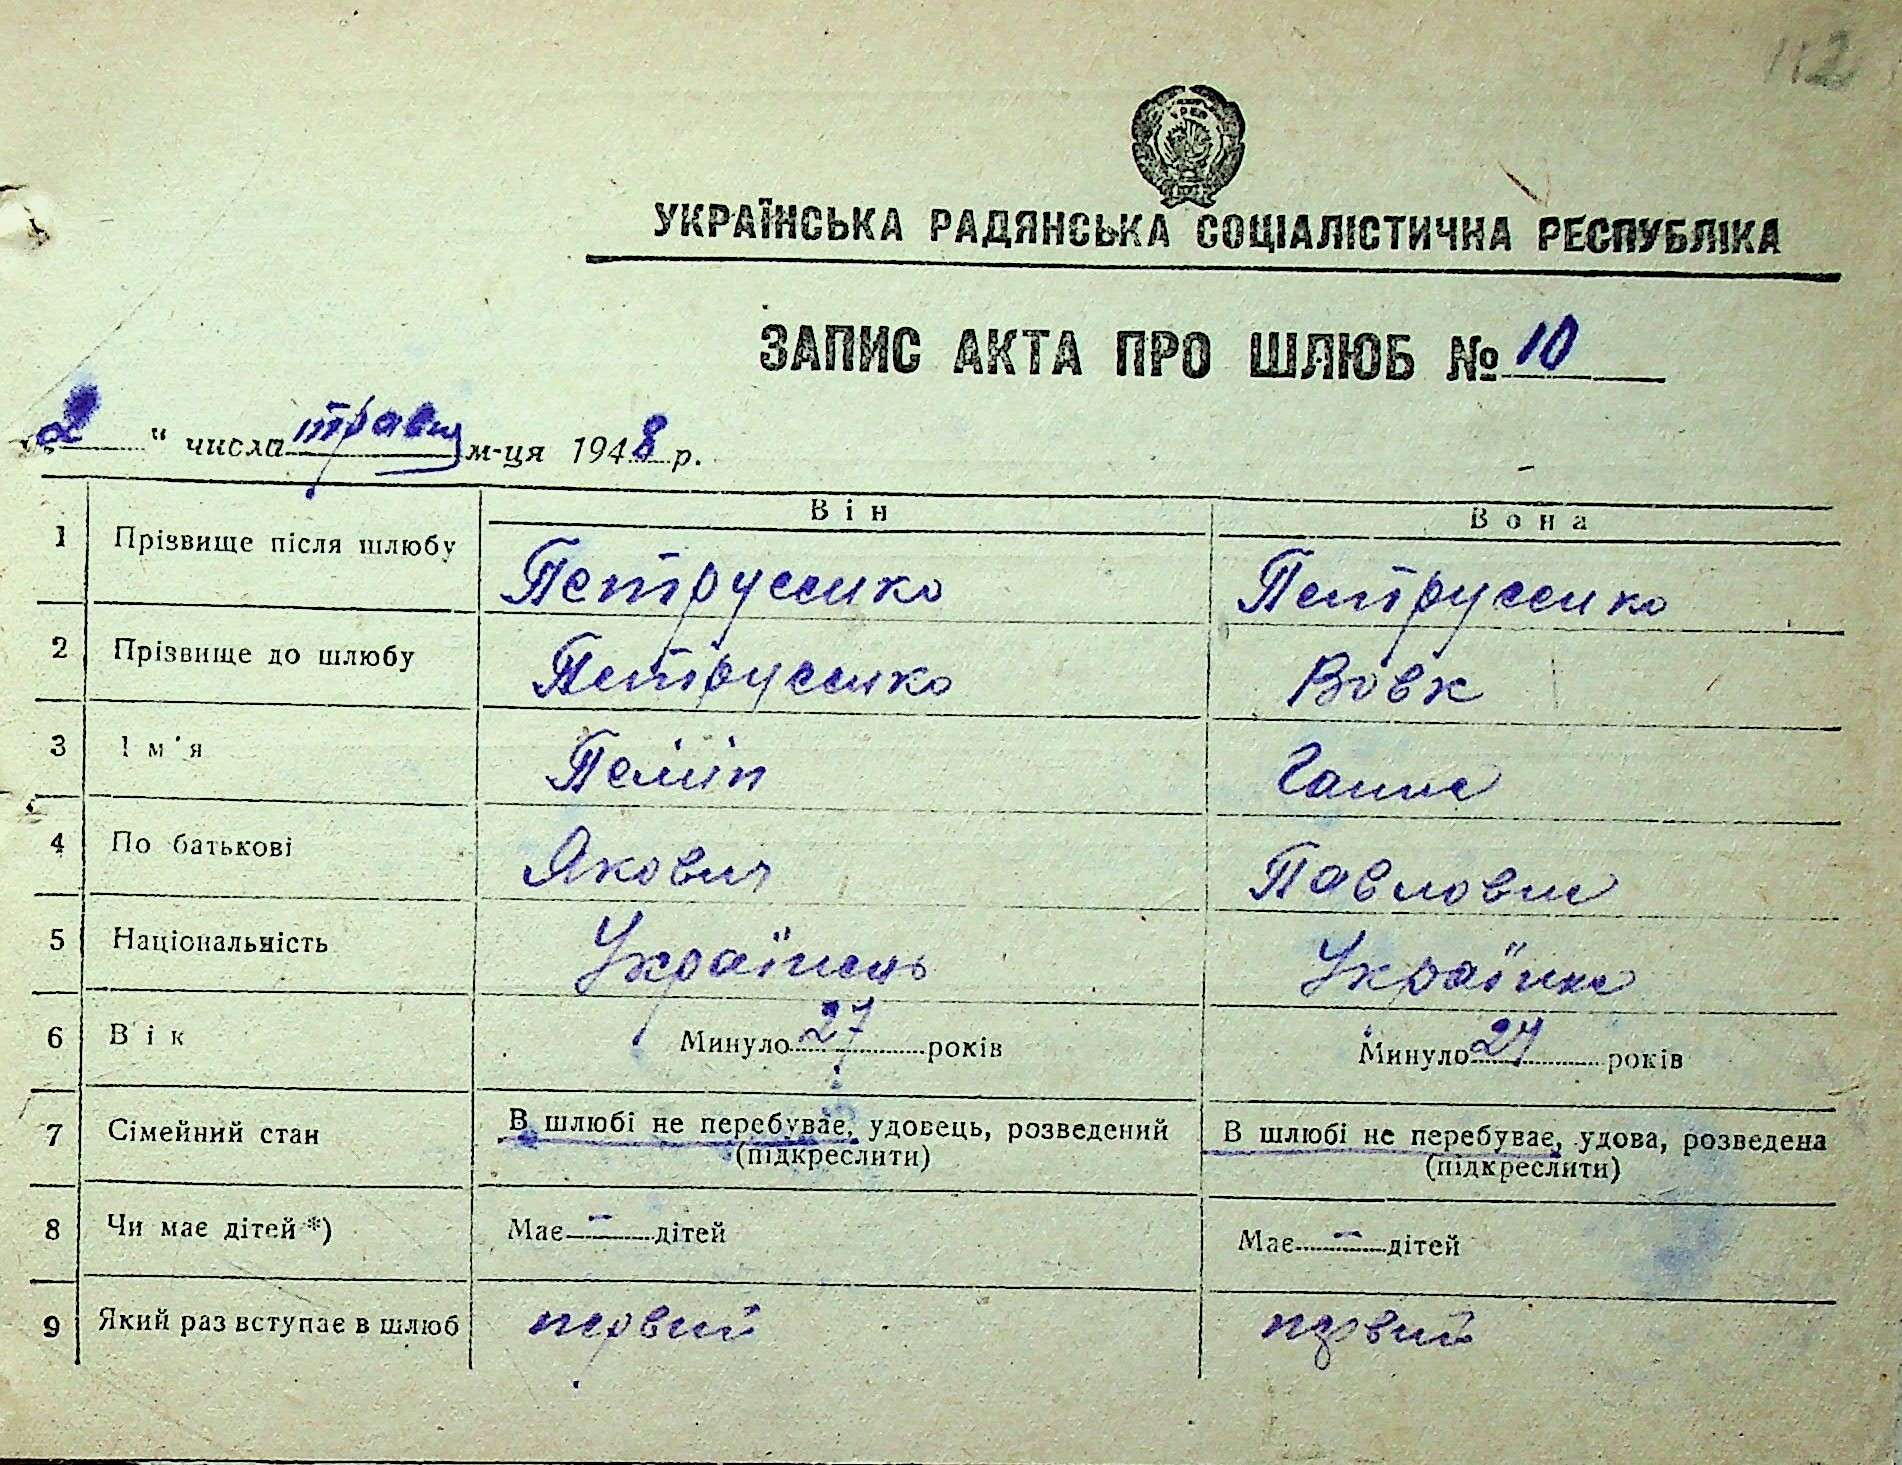 112
УРСР
УКРАЇНСЬКА РАДЯНСЬКА СОЦІАЛІСТИЧНА РЕСПУБЛІКА
ЗАПИС АКТА ПРО ШЛЮБ № 10
„2“ числа травня м-ця 1948 р.
Він Вона
1 Прізвище після шлюбу Петруссико Петруссико
2 Прізвище до шлюбу Петруссико Вовк
3 Ім'я Ганна
4 По батькові Якович Павловна
5 Національність Українець Українка
6 Вік Минуло 27 років Минуло 24 років
7 Сімейний стан В шлюбі не перебуває, удовець, розведений В шлюбі не перебуває, удова, розведена
(підкреслити) (підкреслити)
8 Чи має дітей *) Має – дітей Має – дітей
9 Який раз вступає в шлюб первий первий